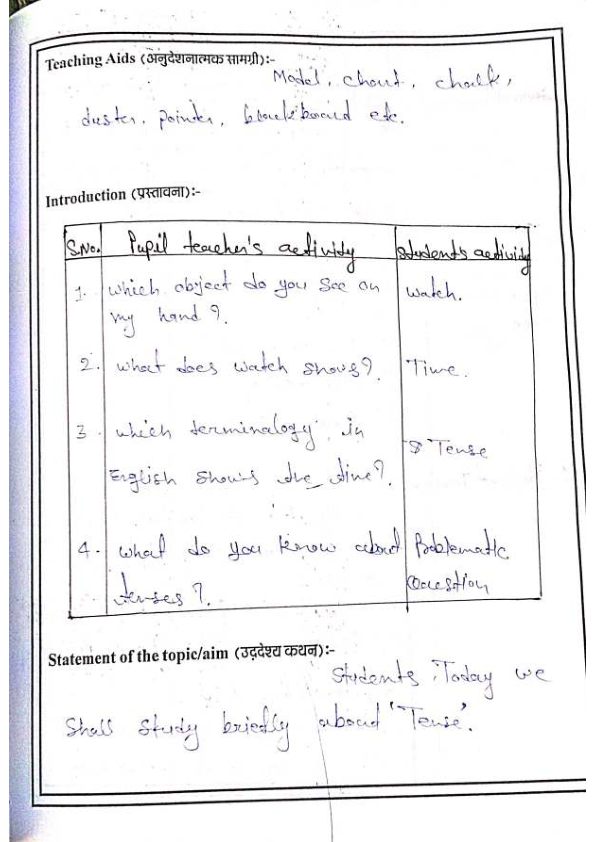 Teaching Aids (अनुदेशनात्मक सामग्री):-
Model, chart, chalk,
duster, pointer, blackboard etc.
Introduction (प्रस्तावना):-
S.No. Pupil teacher's activity Students activity
1. Which object do you see on Watch.
my hand ?.
2. What does watch shows?. Time.
3. which terminalogy in Tense
English shows the time?.
4. what do you know about Problematic
tenses ?. Question
Statement of the topic/aim (उद्देश्य कथन):-
Students, Today we
Shall study briefly about 'Tense'.